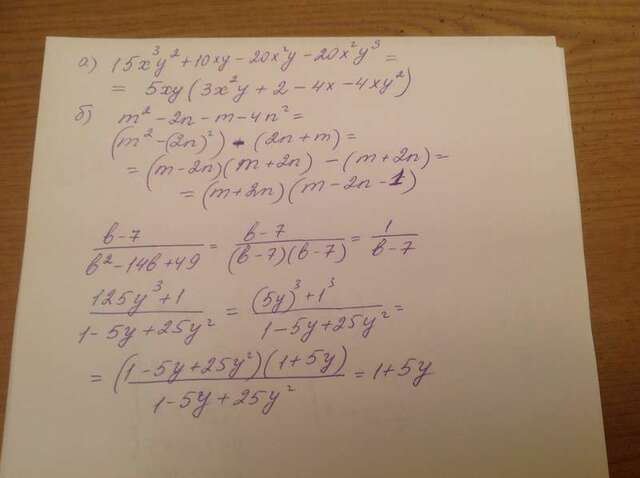 а) 15x³y² + 10xy - 20x²y - 20x²y³ =
= 5xy(3x²y + 2 - 4x - 4xy²)
б) m² - 2n - m - 4n² =
(m² - (2n)²) - (2n + m) =
= (m - 2n)(m + 2n) - (m + 2n) =
= (m + 2n)(m - 2n - 1)
(b - 7)/(b² - 14b + 49) = (b - 7)/((b - 7)(b - 7)) = 1/(b - 7)
(125y³ + 1)/(1 - 5y + 25y²) = ((5y)³ + 1³)/(1 - 5y + 25y²) =
= ((1 - 5y + 25y²)(1 + 5y))/(1 - 5y + 25y²) = 1 + 5y